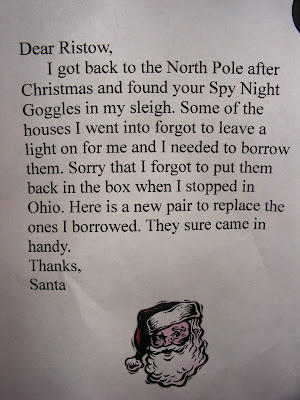 Dear Ristow,
I got back to the North Pole after
Christmas and found your Spy Night
Goggles in my sleigh. Some of the
houses I went into forgot to leave a
light on for me and I needed to borrow
them. Sorry that I forgot to put them
back in the box when I stopped in
Ohio. Here is a new pair to replace the
ones I borrowed. They sure came in
handy.
Thanks,
Santa